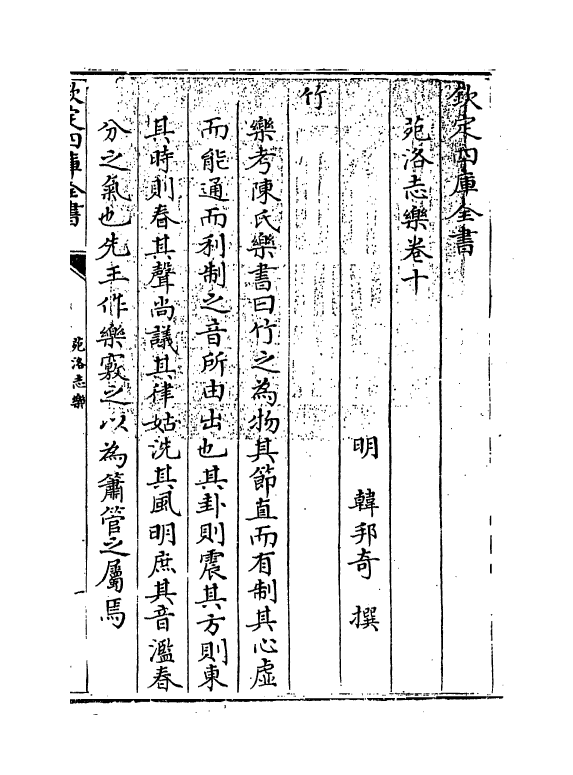 欽定四庫全書
苑洛志樂卷十
明 韓邦奇 撰
竹
樂考陳氏樂書曰竹之為物其節直而有制其心虚
而能通而利制之音所由出也其卦則震其方則東
其時則春其聲尚議其律姑洗其風明庶其音濫春
分之氣也先王作樂竅之以為簫管之屬焉
欽定四庫全書
苑洛志樂